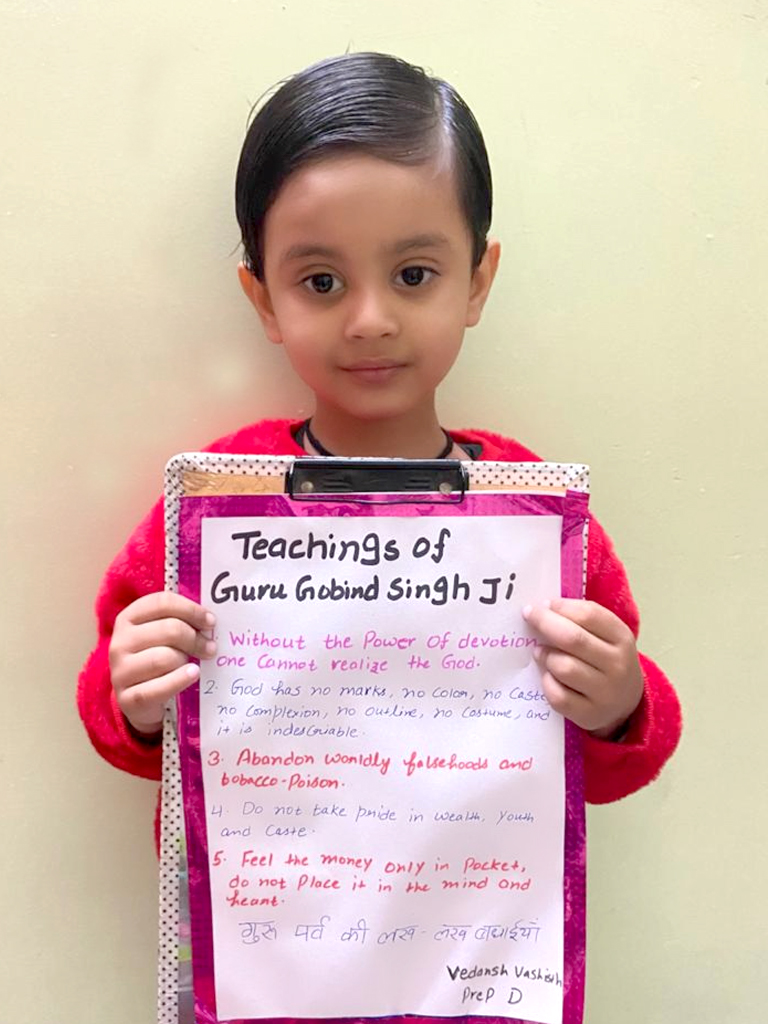 Teachings of
Guru Gobind Singh Ji
1. Without the Power of devotion
one Cannot realize the God.
2. God has no marks, no color, no Caste
no complexion, no outline, no costume, and
it is indescriable.
3. Abandon worldly falsehoods and
bobacco-Poison.
4. Do not take pride in wealth, youth
and Caste.
5. Feel the money only in Pocket,
do not Place it in the mind and
heart.
गुरु पर्व की लख-लख बधाईयाँ
Vedansh Vashisth
PreP D